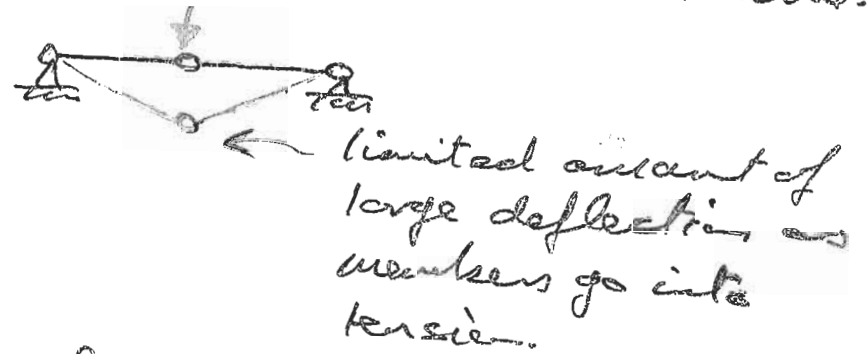 limited amount of
large deflection as
members go into
tension.